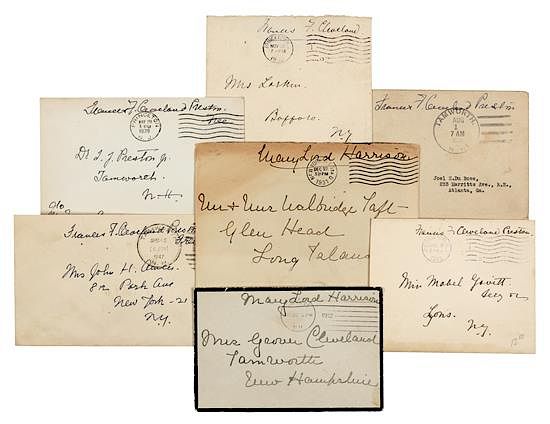 Frances F. Cleveland
NOV
Mrs Larkin.
Buffalo.
NY
Frances F. Cleveland Preston.
Free
PRINCETON
N.J.
Dr T. J. Preston Jr.
Tamworth
N.H.
c/o
Frances F. Cleveland Preston
TAMWORTH
AUG
1
7 AM
N.H.
Joel H. Du Bose,
Atlanta, Ga.
Mary Lord Harrison
DEC
1937
Mr & Mrs Walbridge Taft
Glen Head
Long Island
Frances F. Cleveland Preston
Free
1947
Mrs John H.
Park Ave
New York - 21
N.Y.
Frances F. Cleveland Preston
Miss Mabel
Lyons.
N.Y.
Mary Lord Harrison
1912
Mrs Grover Cleveland
Tamworth
New Hampshire